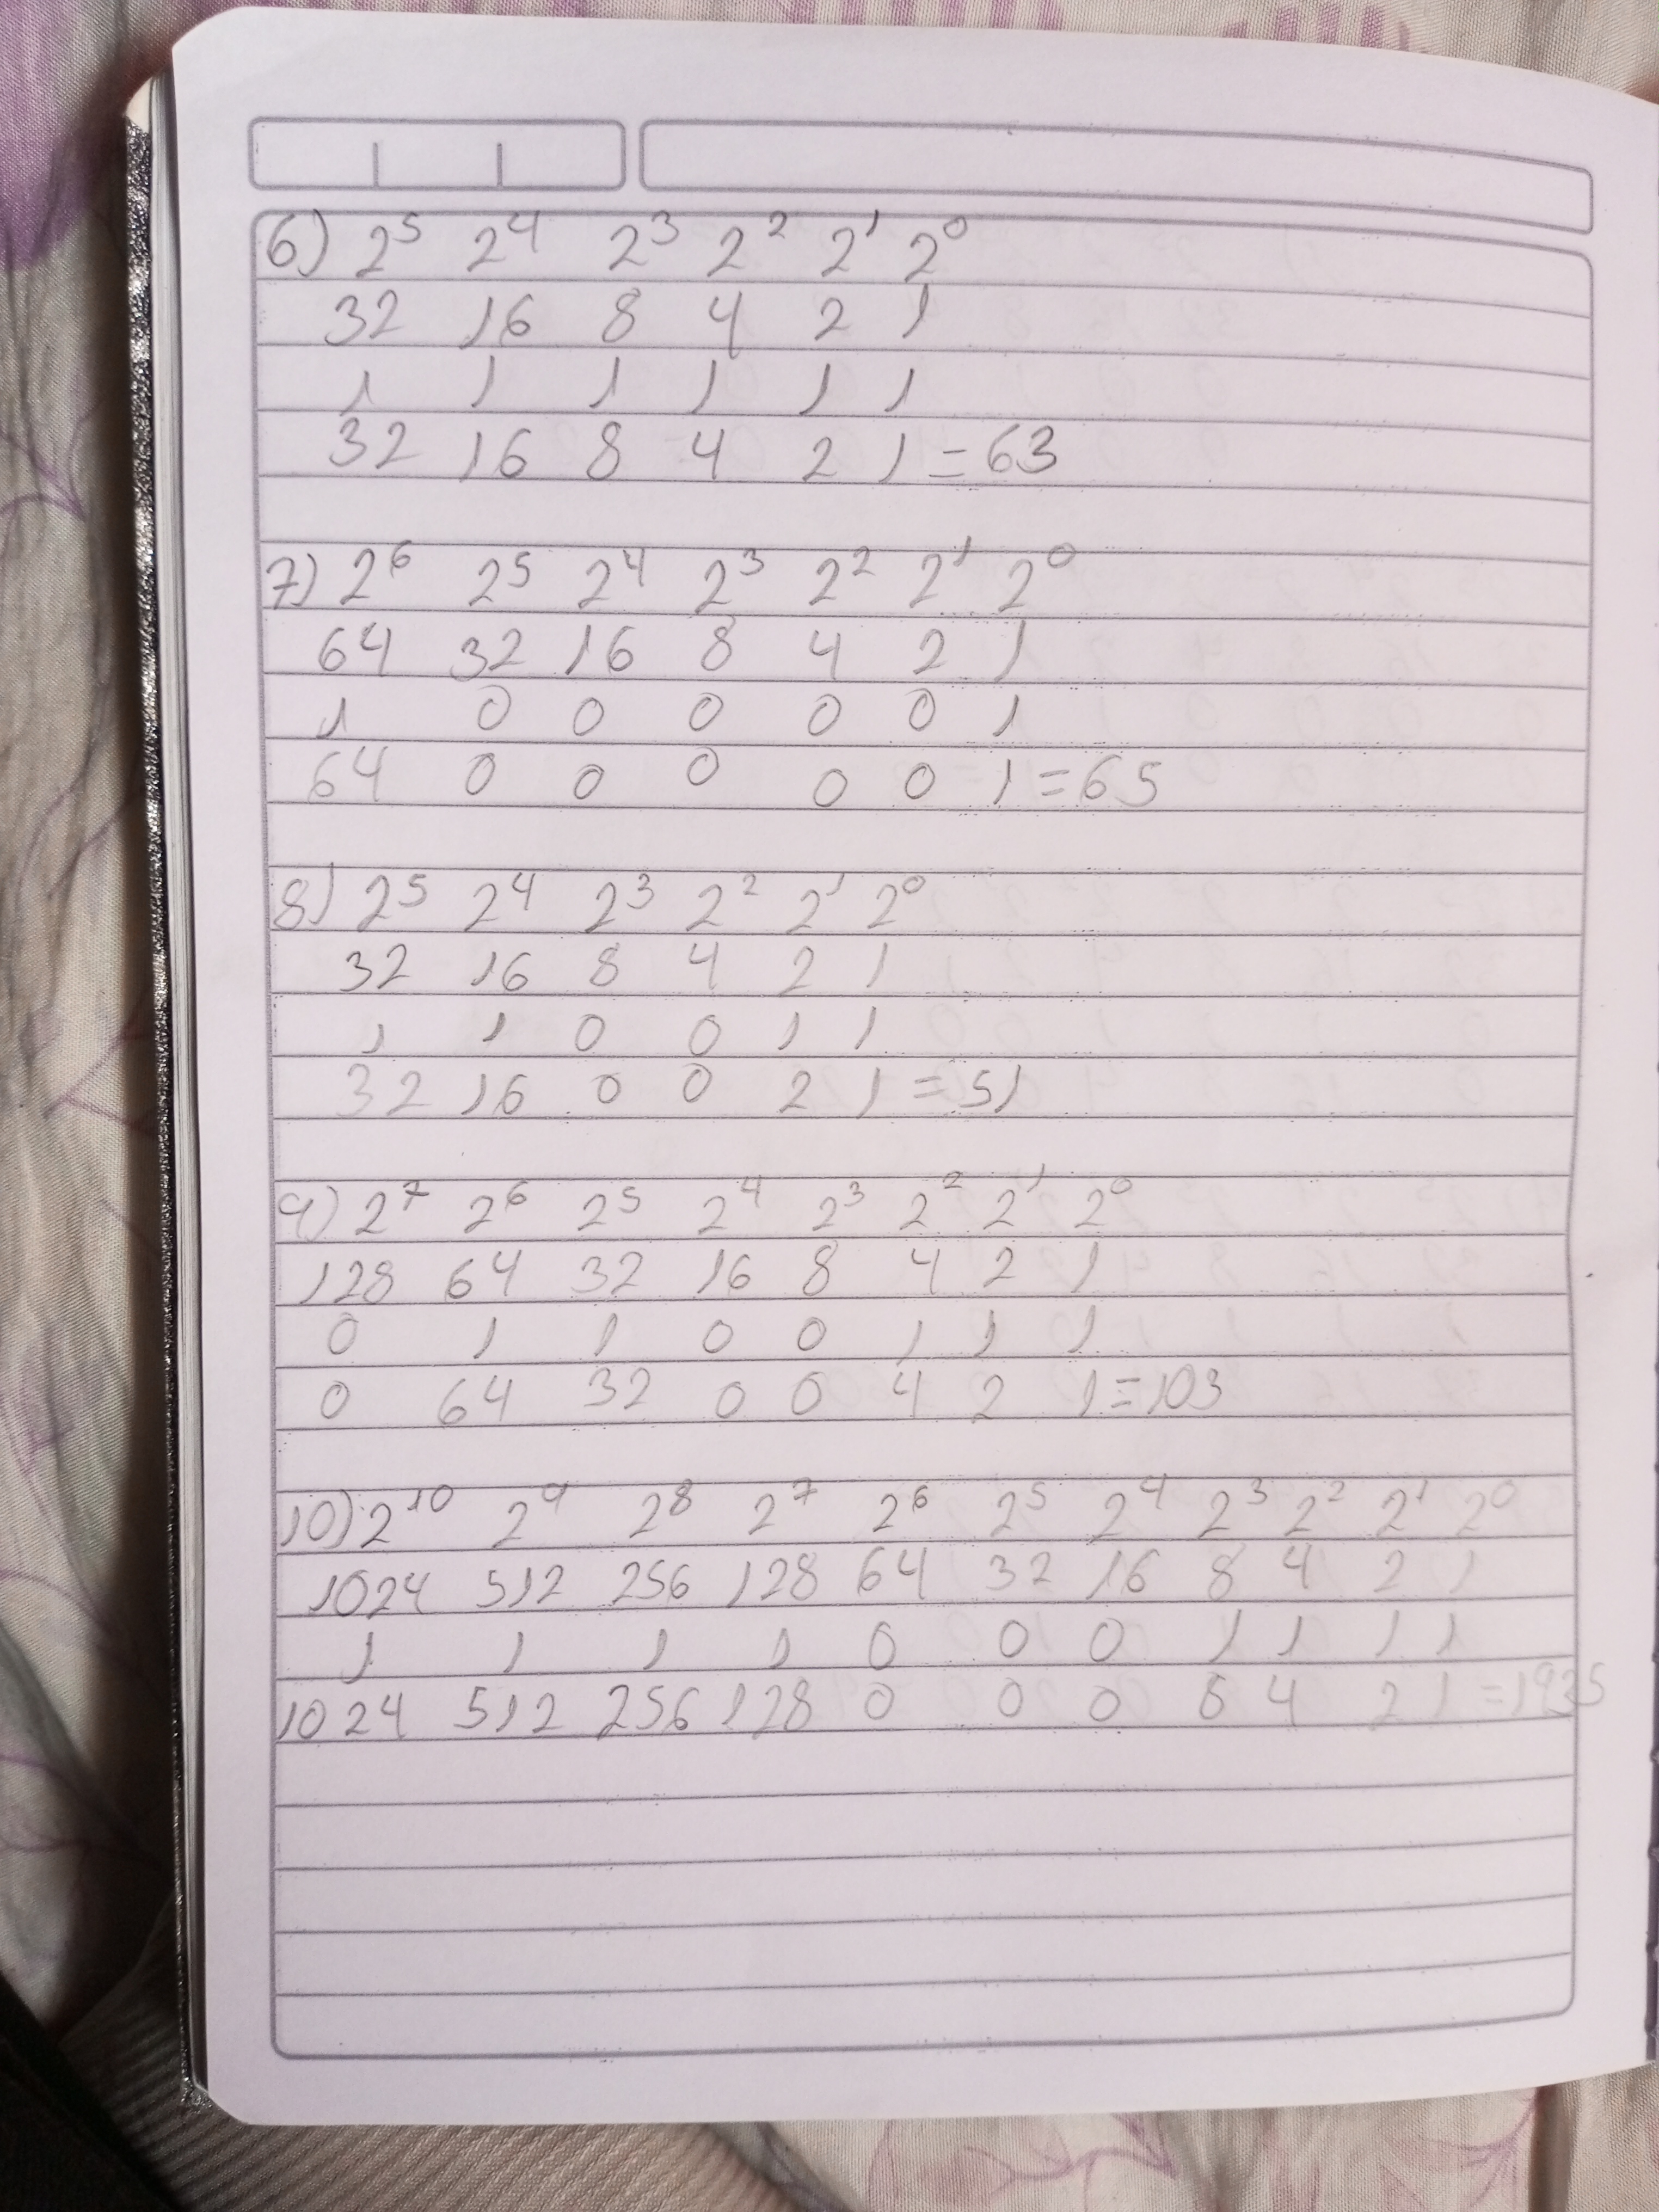 6) 2⁵ 2⁴ 2³ 2² 2¹ 2⁰
32 16 8 4 2 1
1 1 1 1 1 1
32 16 8 4 2 1 = 63
7) 2⁶ 2⁵ 2⁴ 2³ 2² 2¹ 2⁰
64 32 16 8 4 2 1
1 0 0 0 0 0 1
64 0 0 0 0 0 1 = 65
8) 2⁵ 2⁴ 2³ 2² 2¹ 2⁰
32 16 8 4 2 1
1 1 0 0 1 1
32 16 0 0 2 1 = 51
9) 2⁷ 2⁶ 2⁵ 2⁴ 2³ 2² 2¹ 2⁰
128 64 32 16 8 4 2 1
0 1 1 0 0 1 1 1
0 64 32 0 0 4 2 1 = 103
10) 2¹⁰ 2⁹ 2⁸ 2⁷ 2⁶ 2⁵ 2⁴ 2³ 2² 2¹ 2⁰
1024 512 256 128 64 32 16 8 4 2 1
1 1 1 1 0 0 0 1 1 1 1
1024 512 256 128 0 0 0 8 4 2 1 = 1935